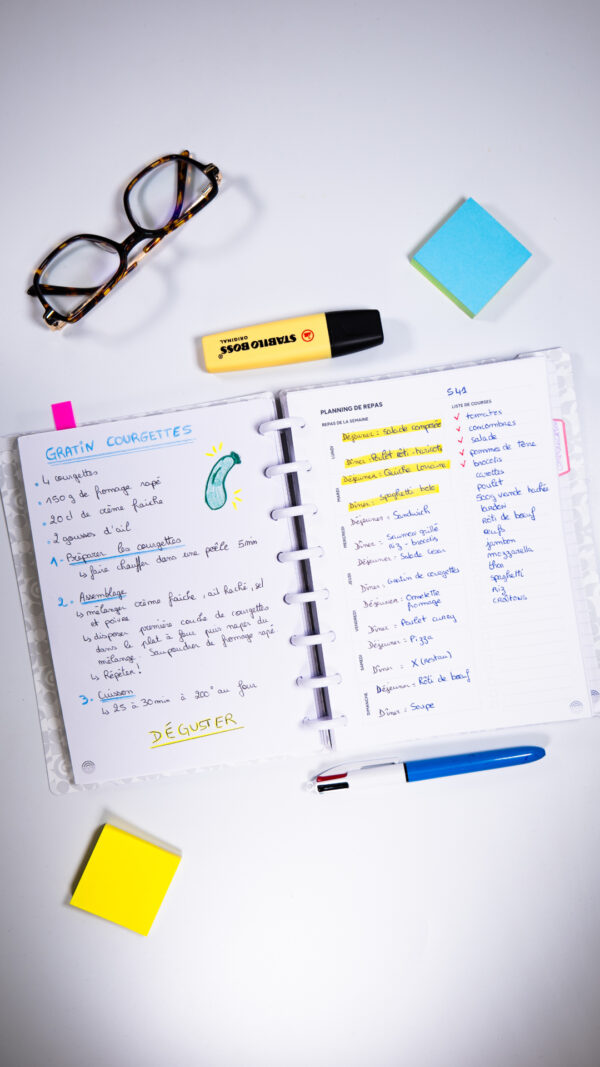 STABILO BOSS
ORIGINAL
GRATIN COURGETTES
4 courgettes
150 g de fromage rapé
20 cl de crème fraiche
2 gousses d'ail
1 - Préparer les courgettes
↳ faire chauffer dans une poêle 5mn
2. Assemblage
↳ mélanger crème fraiche, ail haché, sel
et poivre
↳ disposer première couche de courgettes
dans le plat à four puis napper du
mélange. Saupoudrer de fromage rapé
↳ Répéter!
3. Cuisson
↳ 25 à 30 min à 200° au four
DÉGUSTER
PLANNING DE REPAS
REPAS DE LA SEMAINE
LUNDI
Déjeuner : salade composée
Dîner : Poulet rôti - haricots
MARDI
Déjeuner : Quiche Lorraine
Dîner : spaghetti bolo
MERCREDI
Déjeuner : Sandwich
Dîner : Saumon grillé
riz - brocolis
JEUDI
Déjeuner : Salade César
Dîner : Gratin de courgettes
VENDREDI
Déjeuner : Omelette
fromage
Dîner : Poulet curry
SAMEDI
Déjeuner : Pizza
Dîner : X (restau)
DIMANCHE
Déjeuner : Rôti de bœuf
Dîner : Soupe
S41
LISTE DE COURSES
tomates
concombres
salade
pommes de terre
brocolis
carottes
poulet
500g viande hachée
lardons
rôti de bœuf
œufs
jambon
mozzarella
spaghetti
riz
croûtons